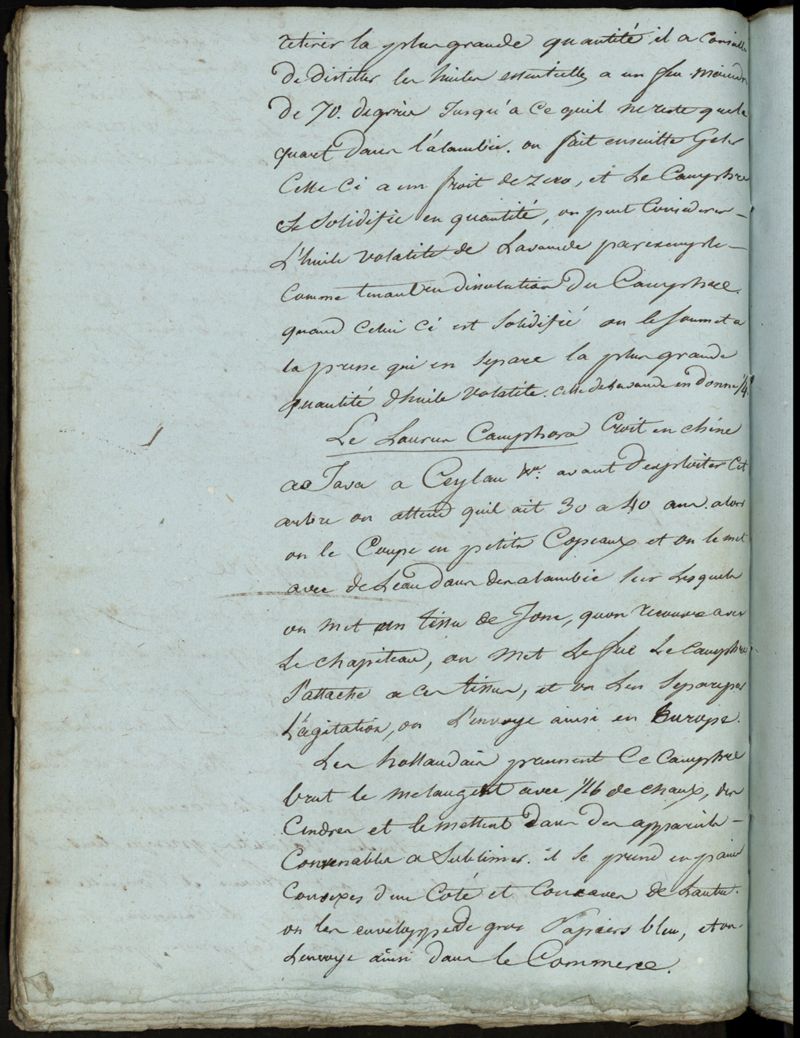 retirer la plus grande quantité il a conseillé
de distiler les huiles essentielles a un feu moindre
de 70. degrées Jusqu'a ce quil ne reste que le
quart dans l'alambic. on fait ensuitte Geler
Celle Ci a un froit de zero, et Le Camphre
se Solidifie en quantité, on peut Considerer
L'huile volatile de Lavande par exemple
Comme tenant en dissolution du Camphre.
quand celui ci est solidifié on le soumet a
la presse qui en separe la plus grande
quantité d'huile volatile. celle de Lavande en donne 1/4.
Le Laurus Camphora Croit en chine
a Java a Ceylan &c. avant d'exploiter Cet
arbre on attend quil ait 30 a 40 ans. alors
on le Coupe en petits Copeaux et on le met
avec de L'eau dans des alambics sur Lesquels
on met un tissu de Jonc, quon recouvre avec
Le chapiteau, on met Le feu Le camphre
s'attache a ces tissus, et on Les separe par
L'agitation, on L'envoye ainsi en Europe.
Les hollandais prennent Ce Camphre
brut le melangent avec 1/16 de chaux, des
Cendres et le mettent dans des appareils
Convenables a Sublimer. il se prend en pains
Convexes d'un Coté et Concaves de L'autre.
on les enveloppe de gros Papiers bleu, et on
L'envoye ainsi dans le Commerce.